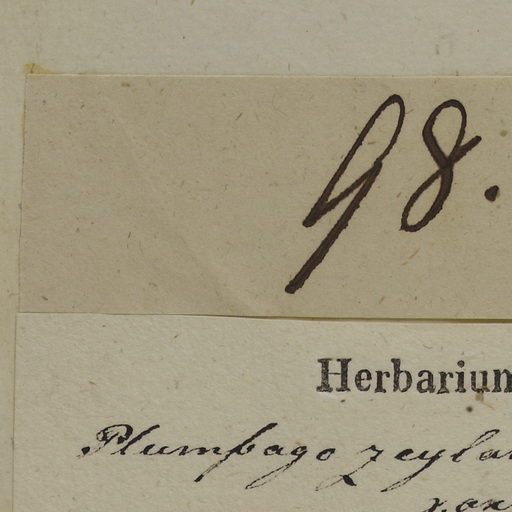 98.
Herbarium
Plumbago zeylan